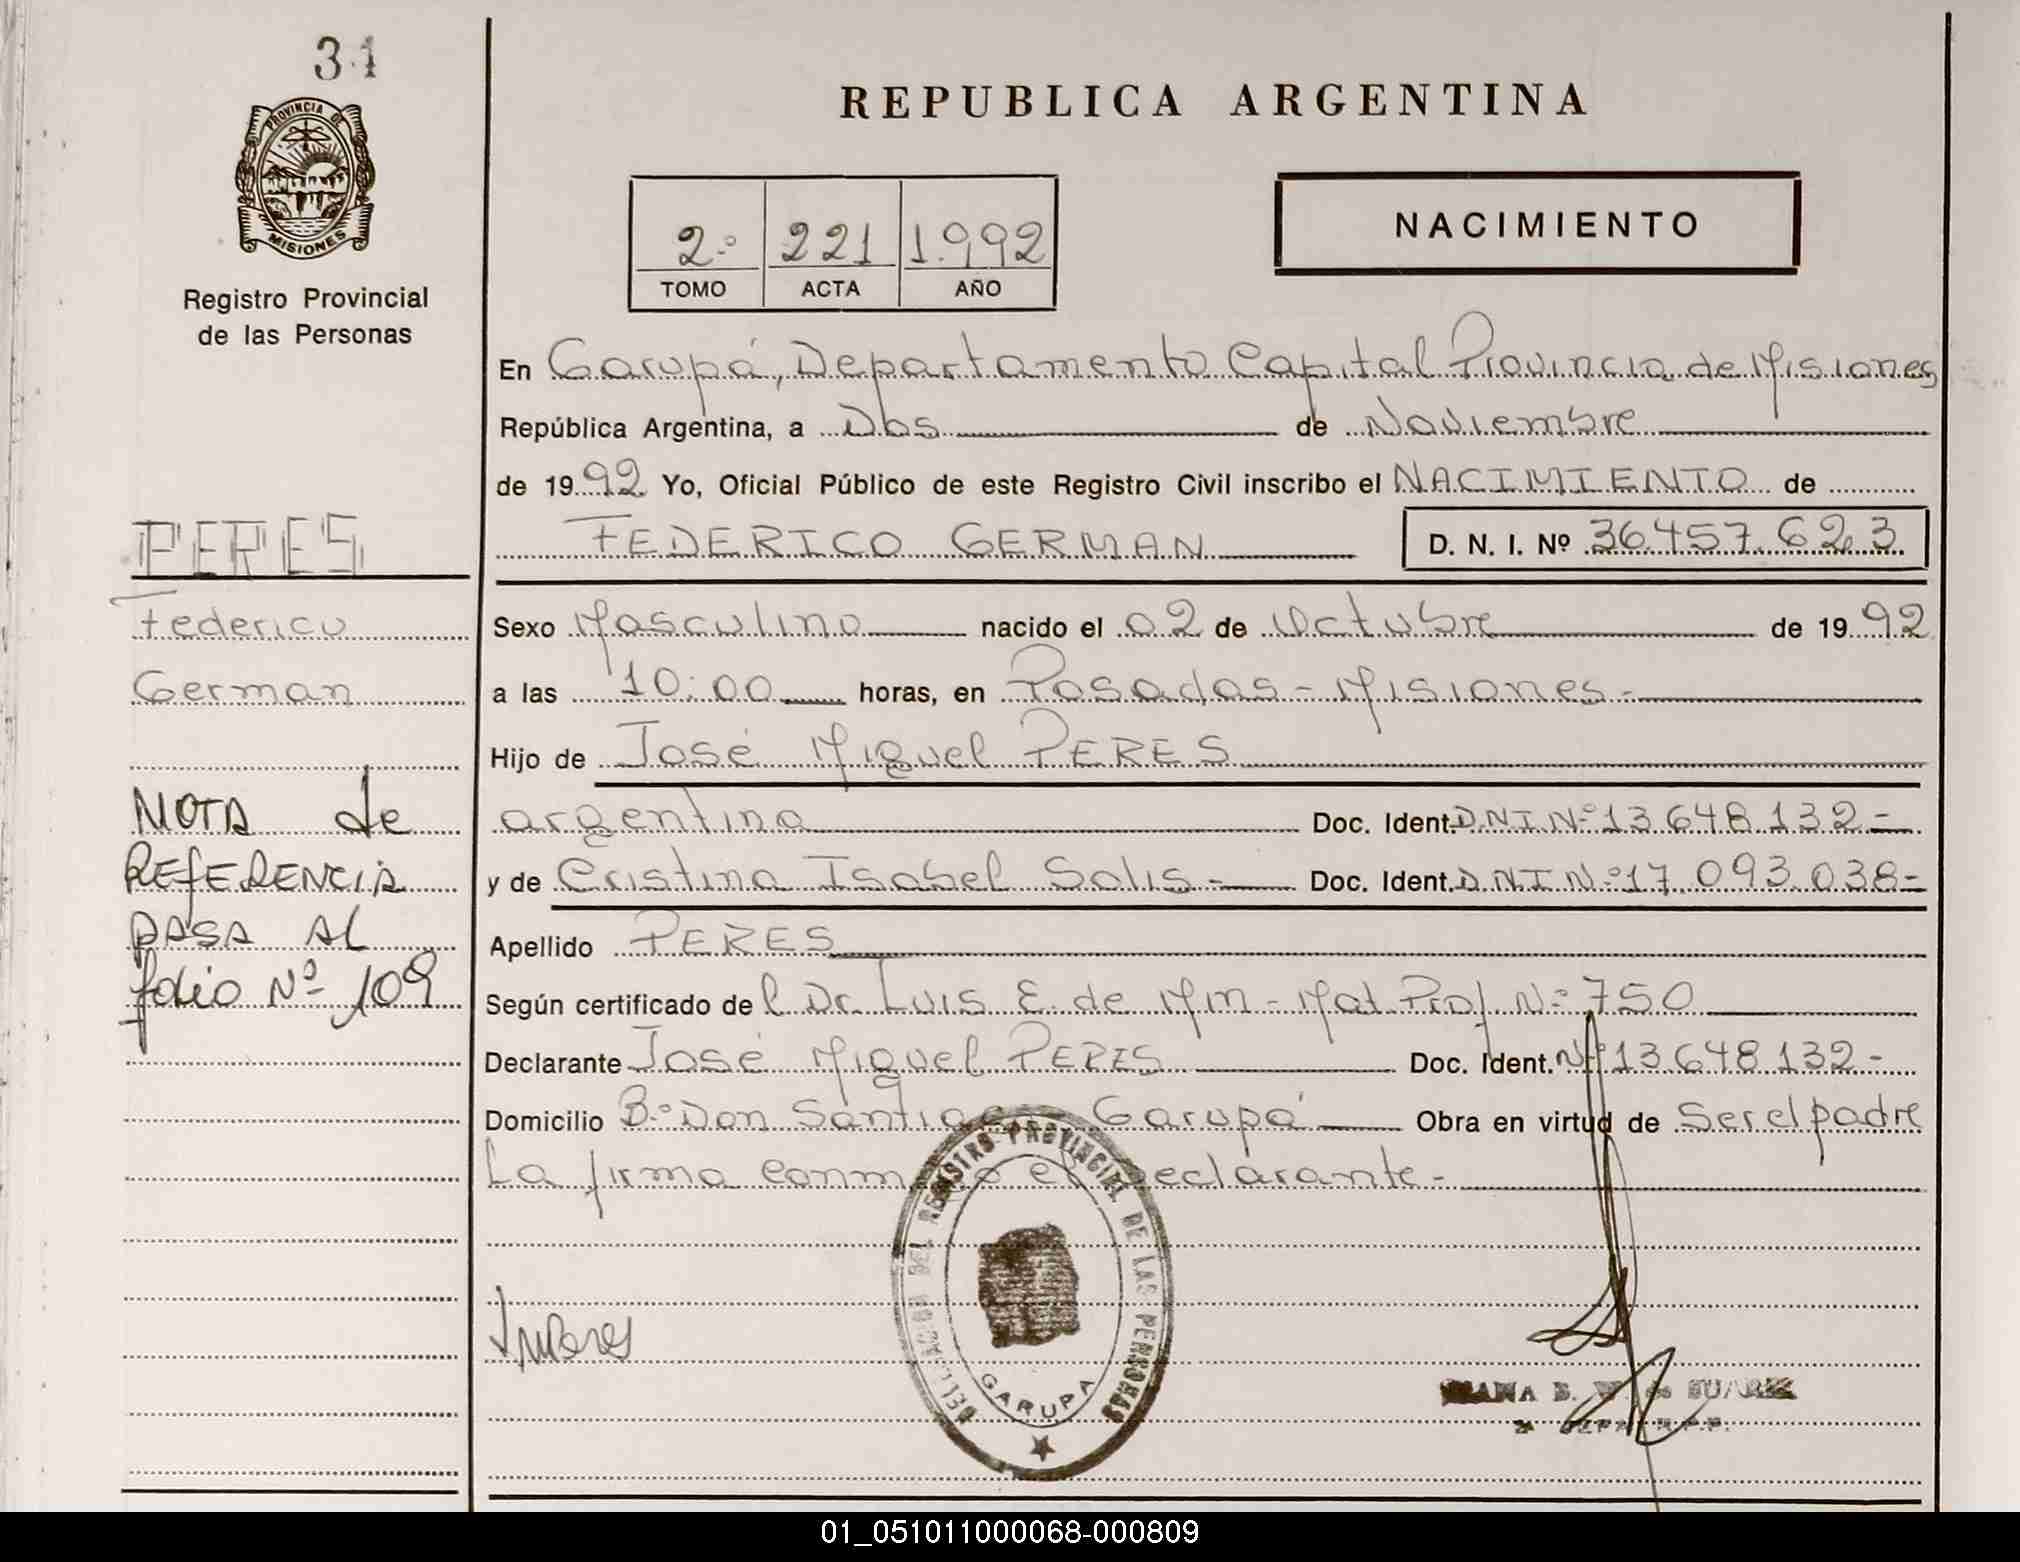 31
PROVINCIA DE
MISIONES
Registro Provincial
de las Personas
REPUBLICA ARGENTINA
2º 221 1.992
TOMO ACTA AÑO
NACIMIENTO
En Garupá, Departamento Capital Provincia de Misiones
República Argentina, a Dos de Noviembre
de 1992 Yo, Oficial Público de este Registro Civil inscribo el NACIMIENTO de
FEDERICO GERMAN D. N. I. Nº 36.457.623
Sexo Masculino nacido el 02 de Octubre de 1992
a las 10:00 horas, en Posadas - Misiones -
Hijo de José Miguel PERES
argentino Doc. Ident. DNI Nº 13.648.132 -
y de Cristina Isabel Solis - Doc. Ident. DNI Nº 17.093.038 -
Apellido PERES
Según certificado de l Dr. Luis E. de Mat. Prof. Nº 750
Declarante José Miguel PERES Doc. Ident. Nº 13.648.132 -
Domicilio Bº Don Santiago Garupá Obra en virtud de Ser el padre
La firma conmigo el declarante -
PERES
Federico
German
NOTA de
REFERENCIA
PASA AL
folio Nº 109
DEL REGISTRO PROVINCIAL DE LAS PERSONAS
GARUPA
B. de SUAREZ
01_051011000068-000809